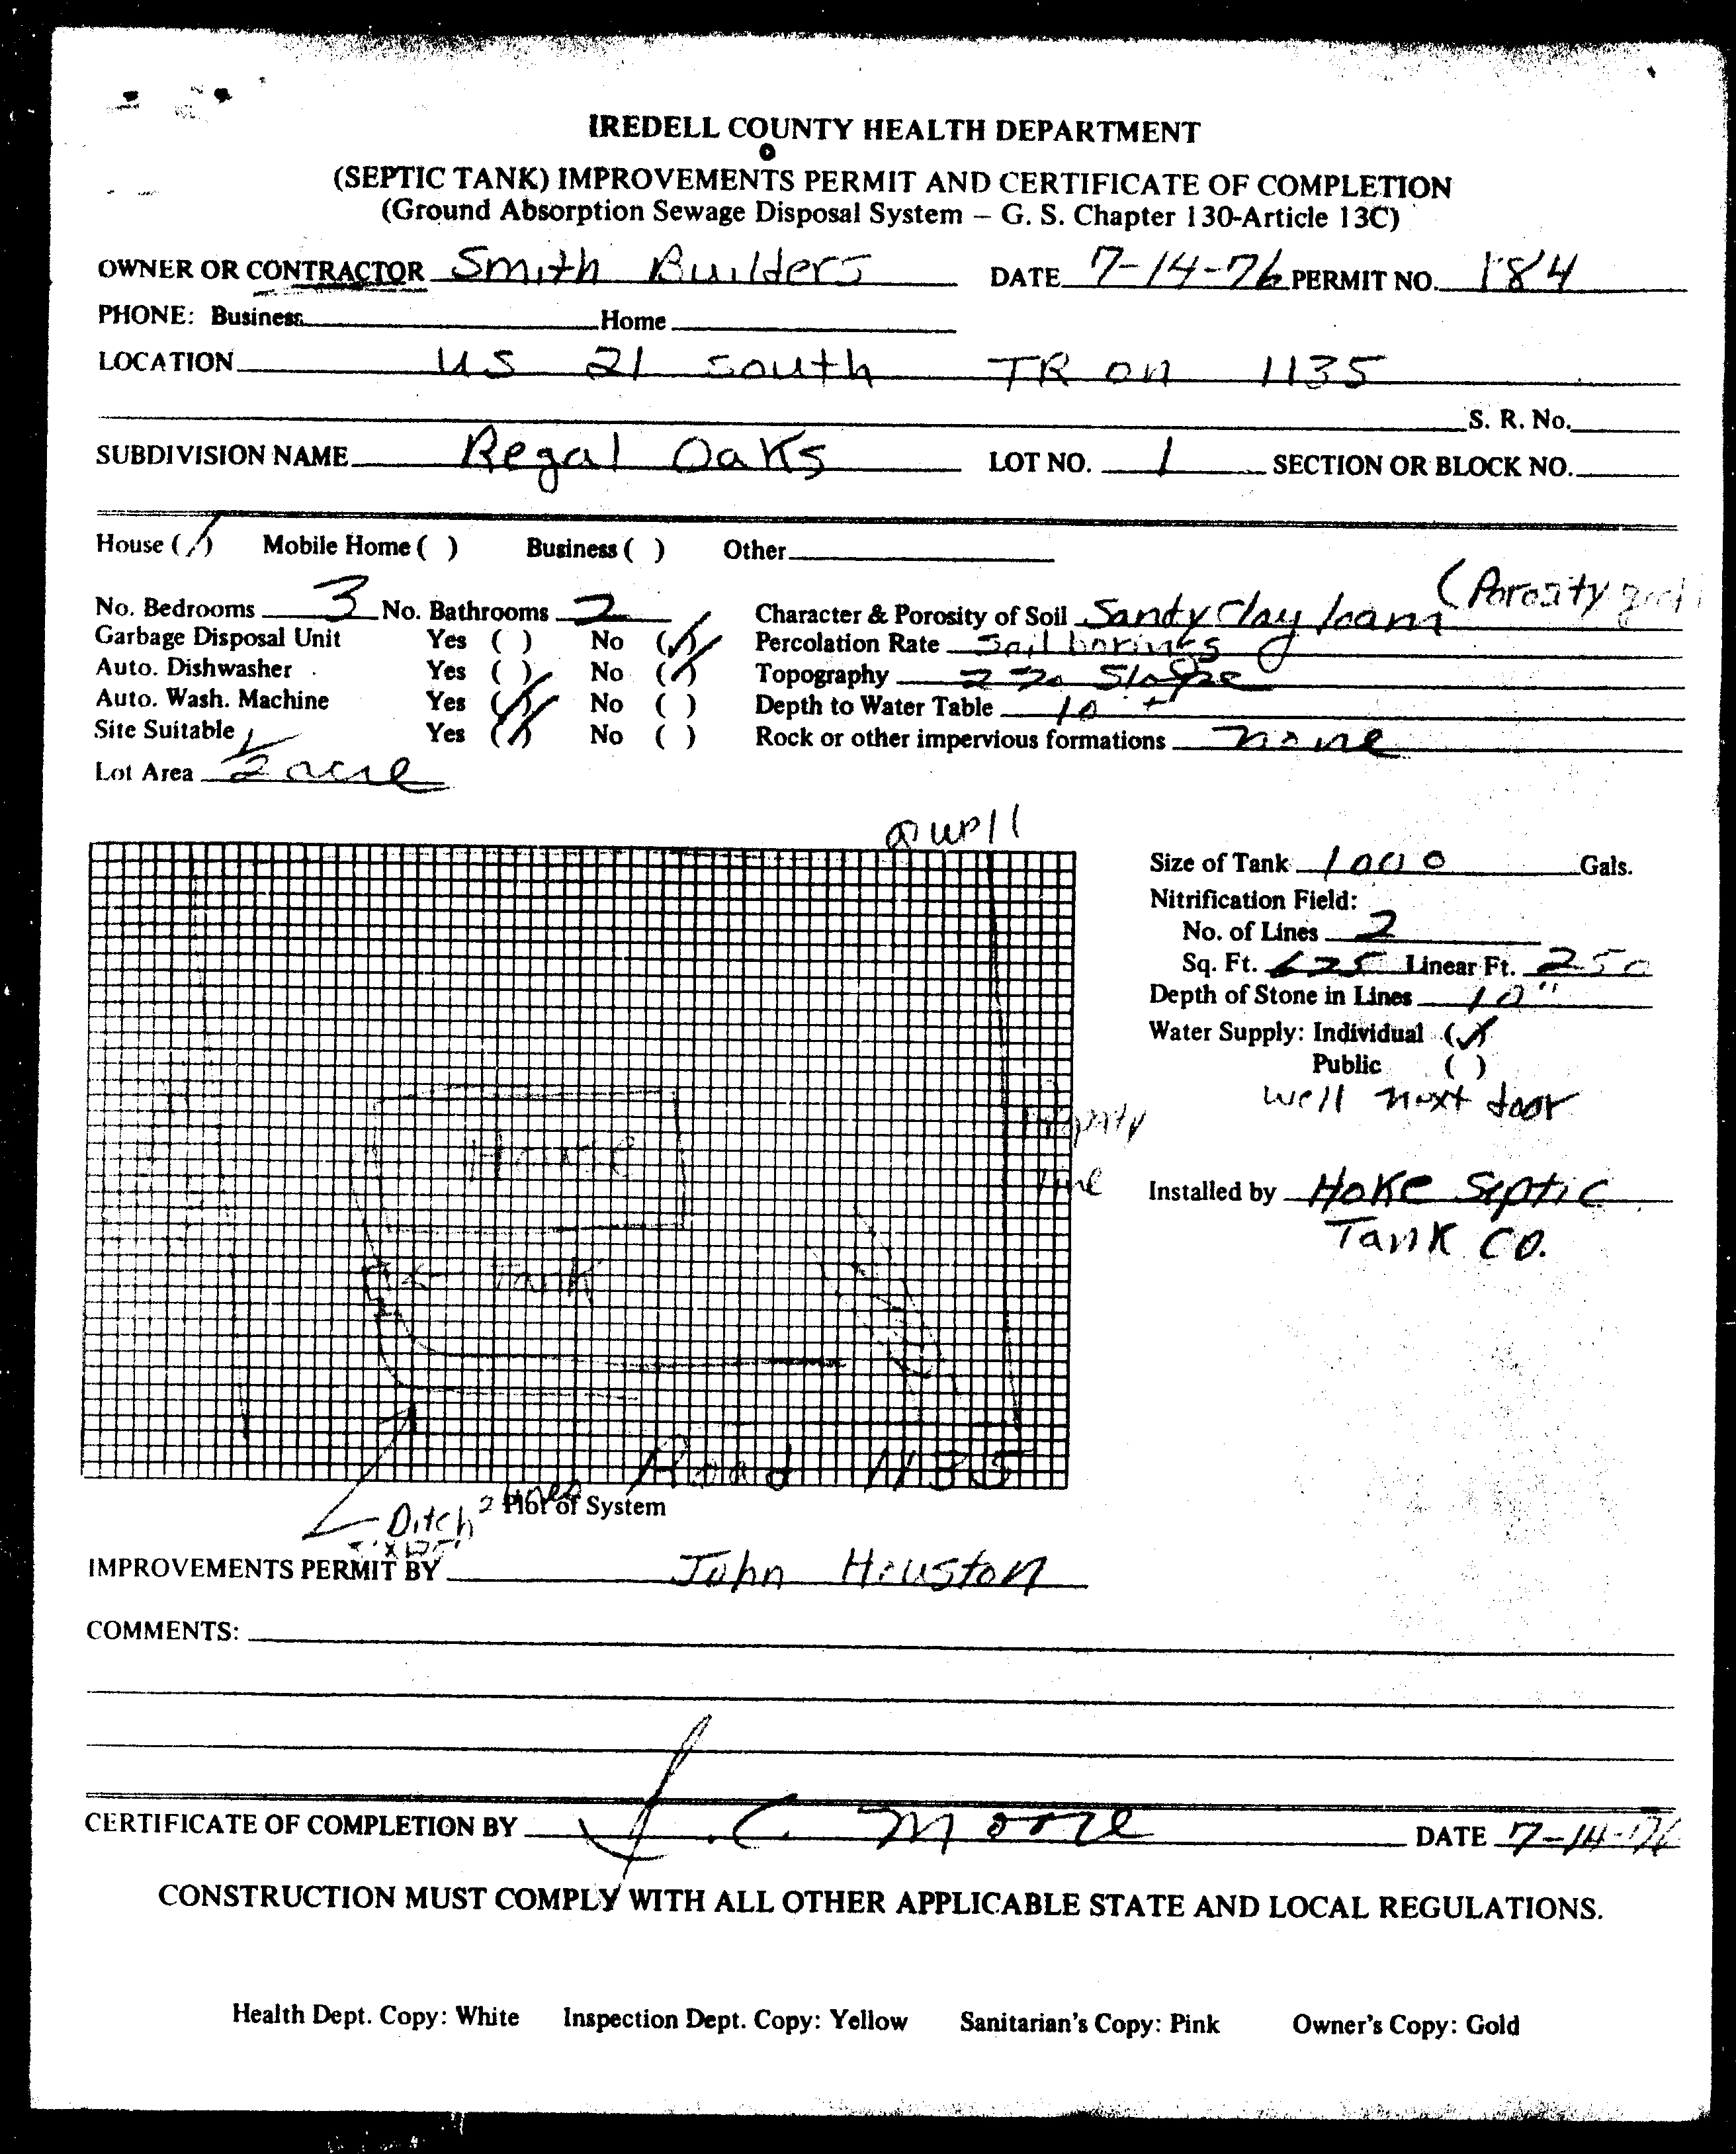 IREDELL COUNTY HEALTH DEPARTMENT
(SEPTIC TANK) IMPROVEMENTS PERMIT AND CERTIFICATE OF COMPLETION
(Ground Absorption Sewage Disposal System – G. S. Chapter 130-Article 13C)
OWNER OR CONTRACTOR Smith Builders DATE 7-14-76 PERMIT NO. 184
PHONE: Business Home
LOCATION US 21 south TR on 1135
S. R. No.
SUBDIVISION NAME Regal Oaks LOT NO. 1 SECTION OR BLOCK NO.
House (✓) Mobile Home ( ) Business ( ) Other
(Porosity good)
No. Bedrooms 3 No. Bathrooms 2 Character & Porosity of Soil Sandy Clay loam
Garbage Disposal Unit Yes ( ) No (✓) Percolation Rate Soil borings
Auto. Dishwasher Yes ( ) No (✓) Topography 2% Slope
Auto. Wash. Machine Yes (✓) No ( ) Depth to Water Table 10 +
Site Suitable Yes (✓) No ( ) Rock or other impervious formations none
Lot Area 1/2 acre
well
Size of Tank 1000 Gals.
Nitrification Field:
No. of Lines 2
Sq. Ft. 625 Linear Ft. 250
Depth of Stone in Lines 10"
Water Supply: Individual (✓)
Public ( )
well next door
House
Property
line
Installed by Hoke Septic
Tank Co.
Tank
Road 1135
Ditch 2 lines
Plot of System
IMPROVEMENTS PERMIT BY John Houston
COMMENTS:
CERTIFICATE OF COMPLETION BY J. C. Moore DATE 7-14-76
CONSTRUCTION MUST COMPLY WITH ALL OTHER APPLICABLE STATE AND LOCAL REGULATIONS.
Health Dept. Copy: White Inspection Dept. Copy: Yellow Sanitarian's Copy: Pink Owner's Copy: Gold